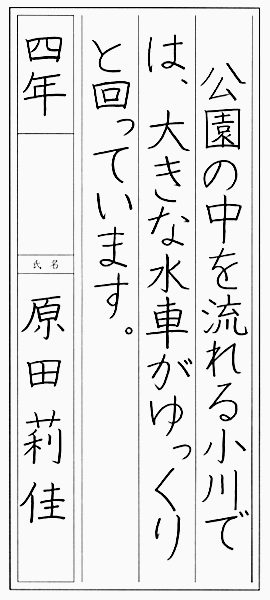 公園の中を流れる小川で
は、大きな水車がゆっくり
と回っています。
四年
氏名
原田莉佳